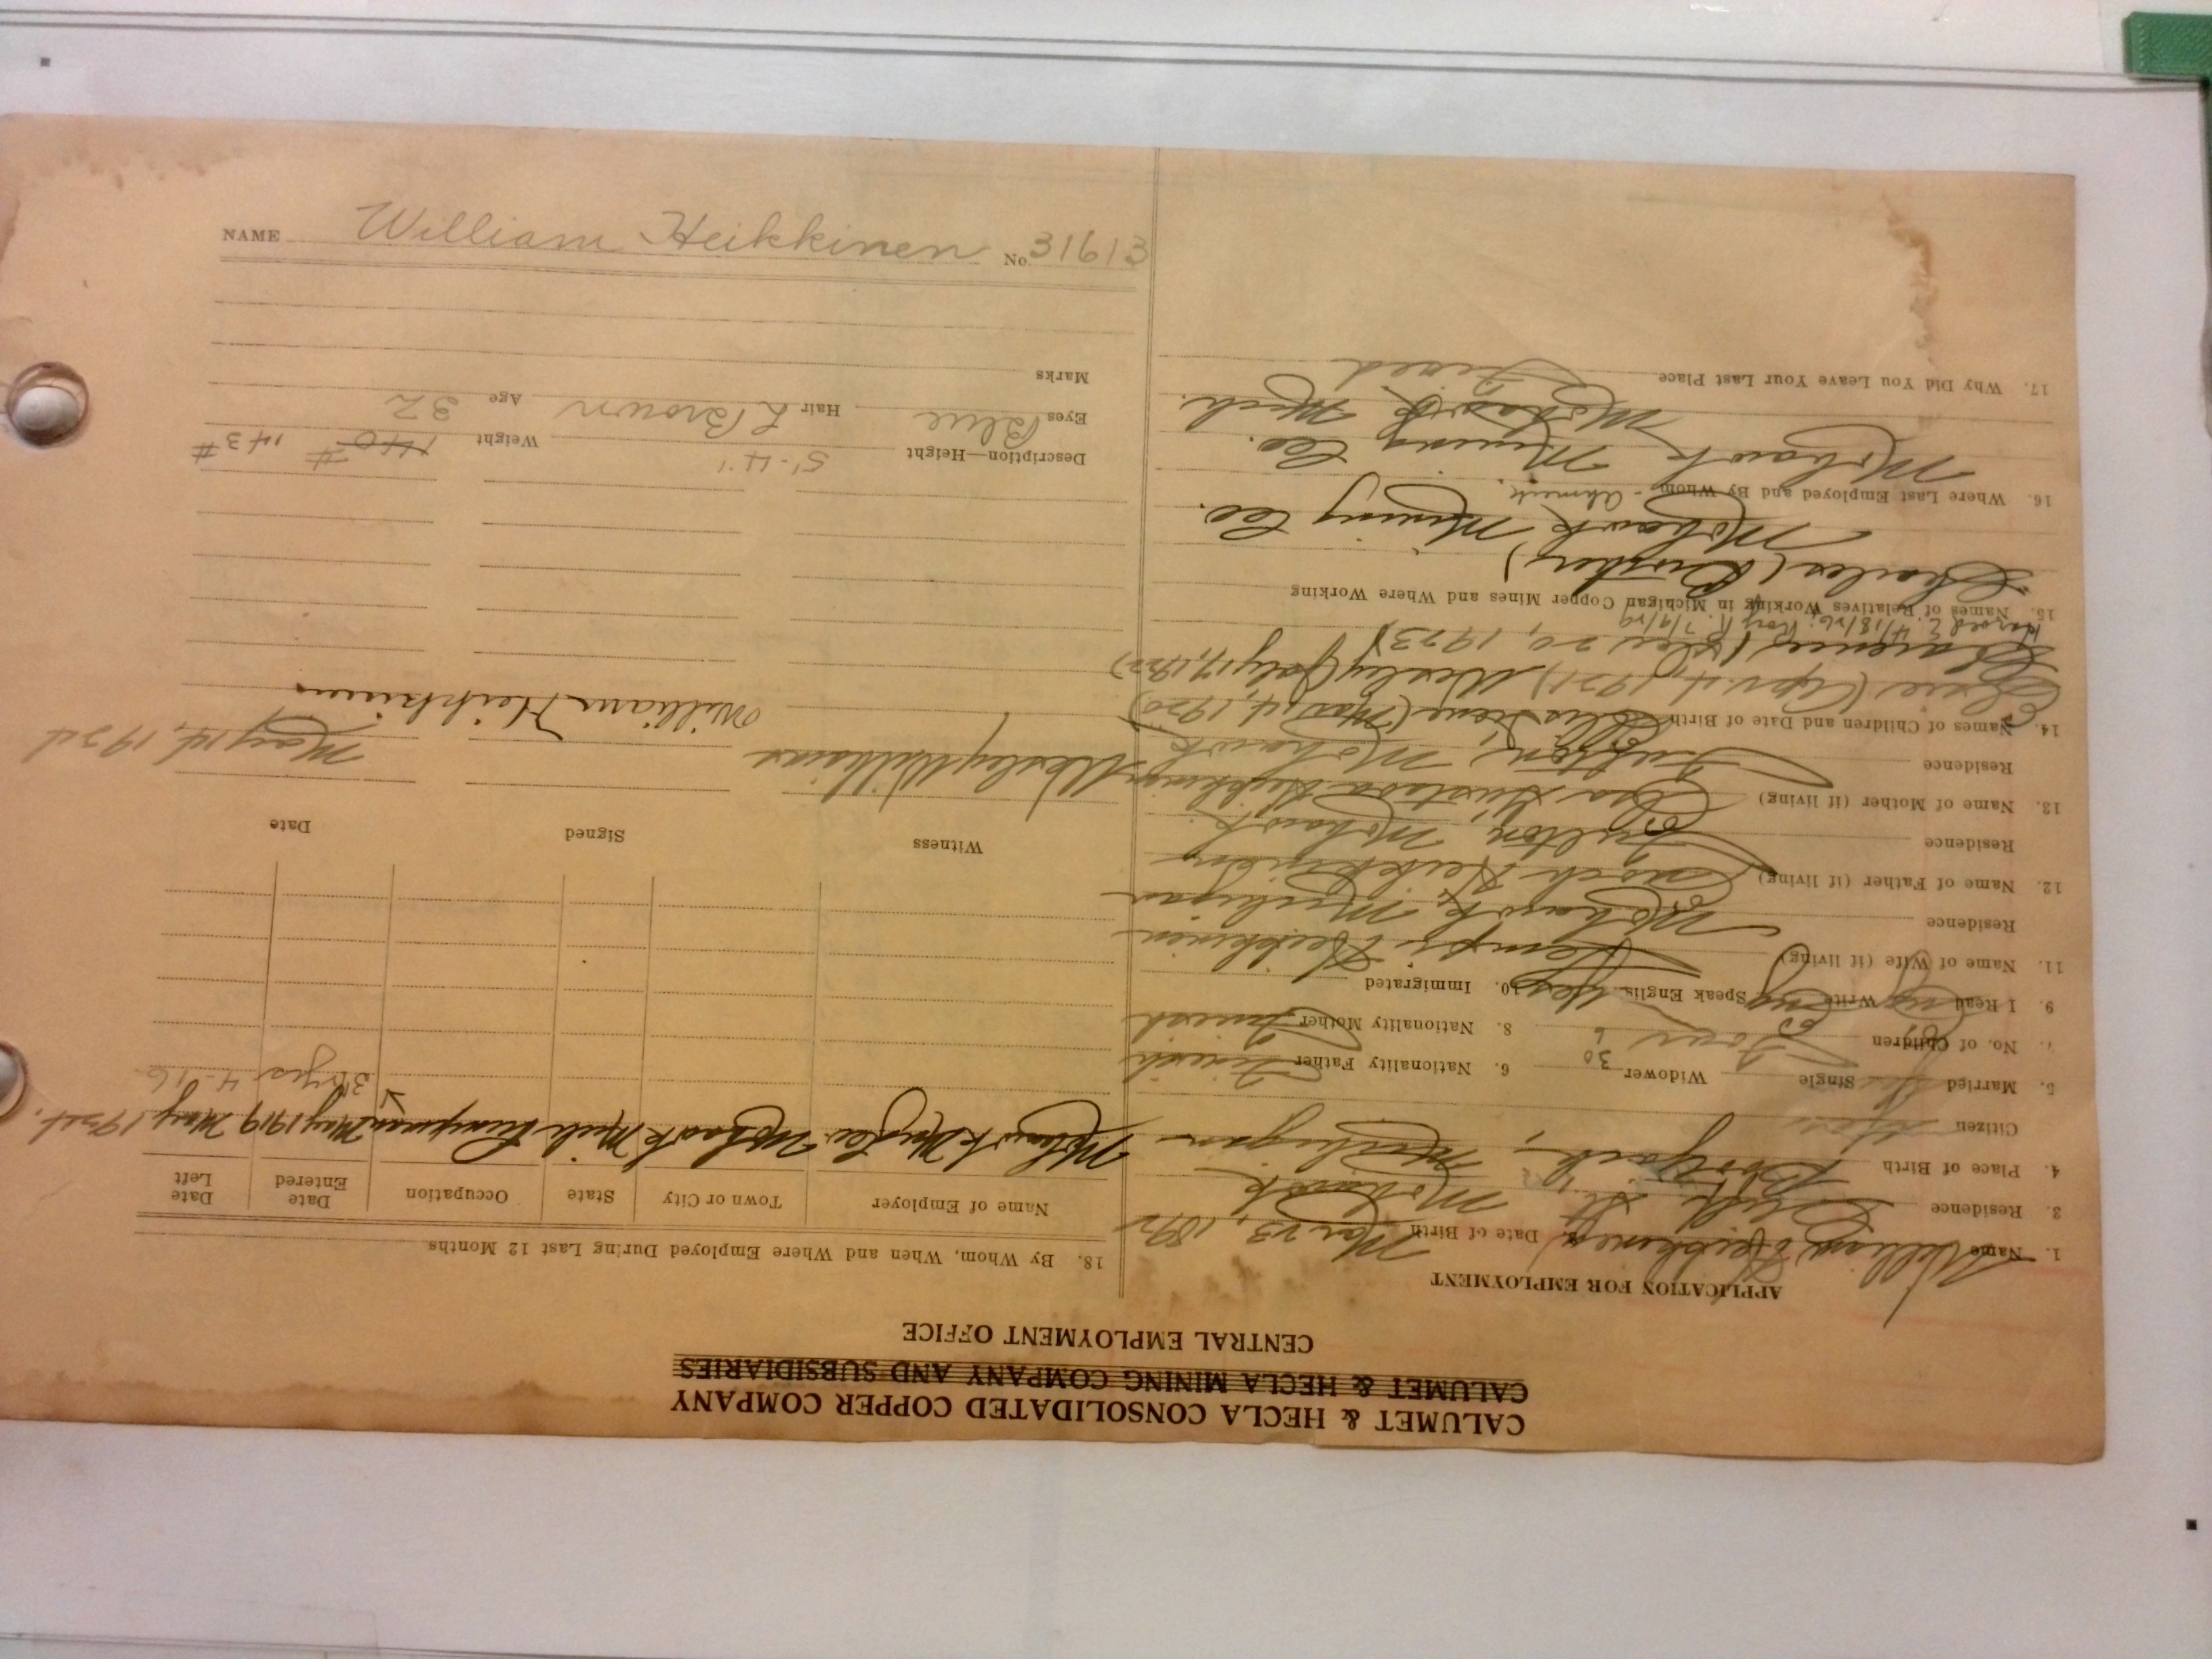 CALUMET & HECLA CONSOLIDATED COPPER COMPANY
CALUMET & HECLA MINING COMPANY AND SUBSIDIARIES
CENTRAL EMPLOYMENT OFFICE
APPLICATION FOR EMPLOYMENT
1. Name William Heikkinen Date of Birth Mar 23, 1892
3. Residence St. Mohawk
4. Place of Birth Michigan
Citizen Yes
5. Married Yes Single Widower 30 6. Nationality Father Finnish
7. No. of Children Four 6 8. Nationality Mother Finnish
9. I Read Eng Write Eng Speak Englis Yes 10. Immigrated
11. Name of Wife (if living) Heikkinen
Residence Mohawk, Michigan
12. Name of Father (if living) Enoch Heikkinen
Residence Fulton, Mohawk.
13. Name of Mother (if living) Eva Gustava Heikkinen
Residence Fulton, Mohawk
14. Names of Children and Date of Birth Irene (Mar. 14, 1920)
(Apr. 4, 1921), Wesley (July 17, 1922)
Clarence (Dec 20, 1923)
Harold E. 4/18/26; Roy R. 7/9/29
15. Names of Relatives Working in Michigan Copper Mines and Where Working
Charles (Brother)
Mohawk Mining Co.
16. Where Last Employed and By Whom - Ahmeek.
Mohawk Mining Co.
Mohawk Mich.
17. Why Did You Leave Your Last Place Fired
18. By Whom, When and Where Employed During Last 12 Months
Name of Employer Town or City State Occupation Date Entered Date Left
Mohawk Mng Co. Mohawk Mich Trammer May 1919 May 1924.
3 yrs 4-16
Witness Signed Date
Wesley Williams William Heikkinen May 14, 1924
Description—Height 5'-4" Weight 140# 143#
Eyes Blue Hair L Brown Age 32
Marks
NAME William Heikkinen No. 31613